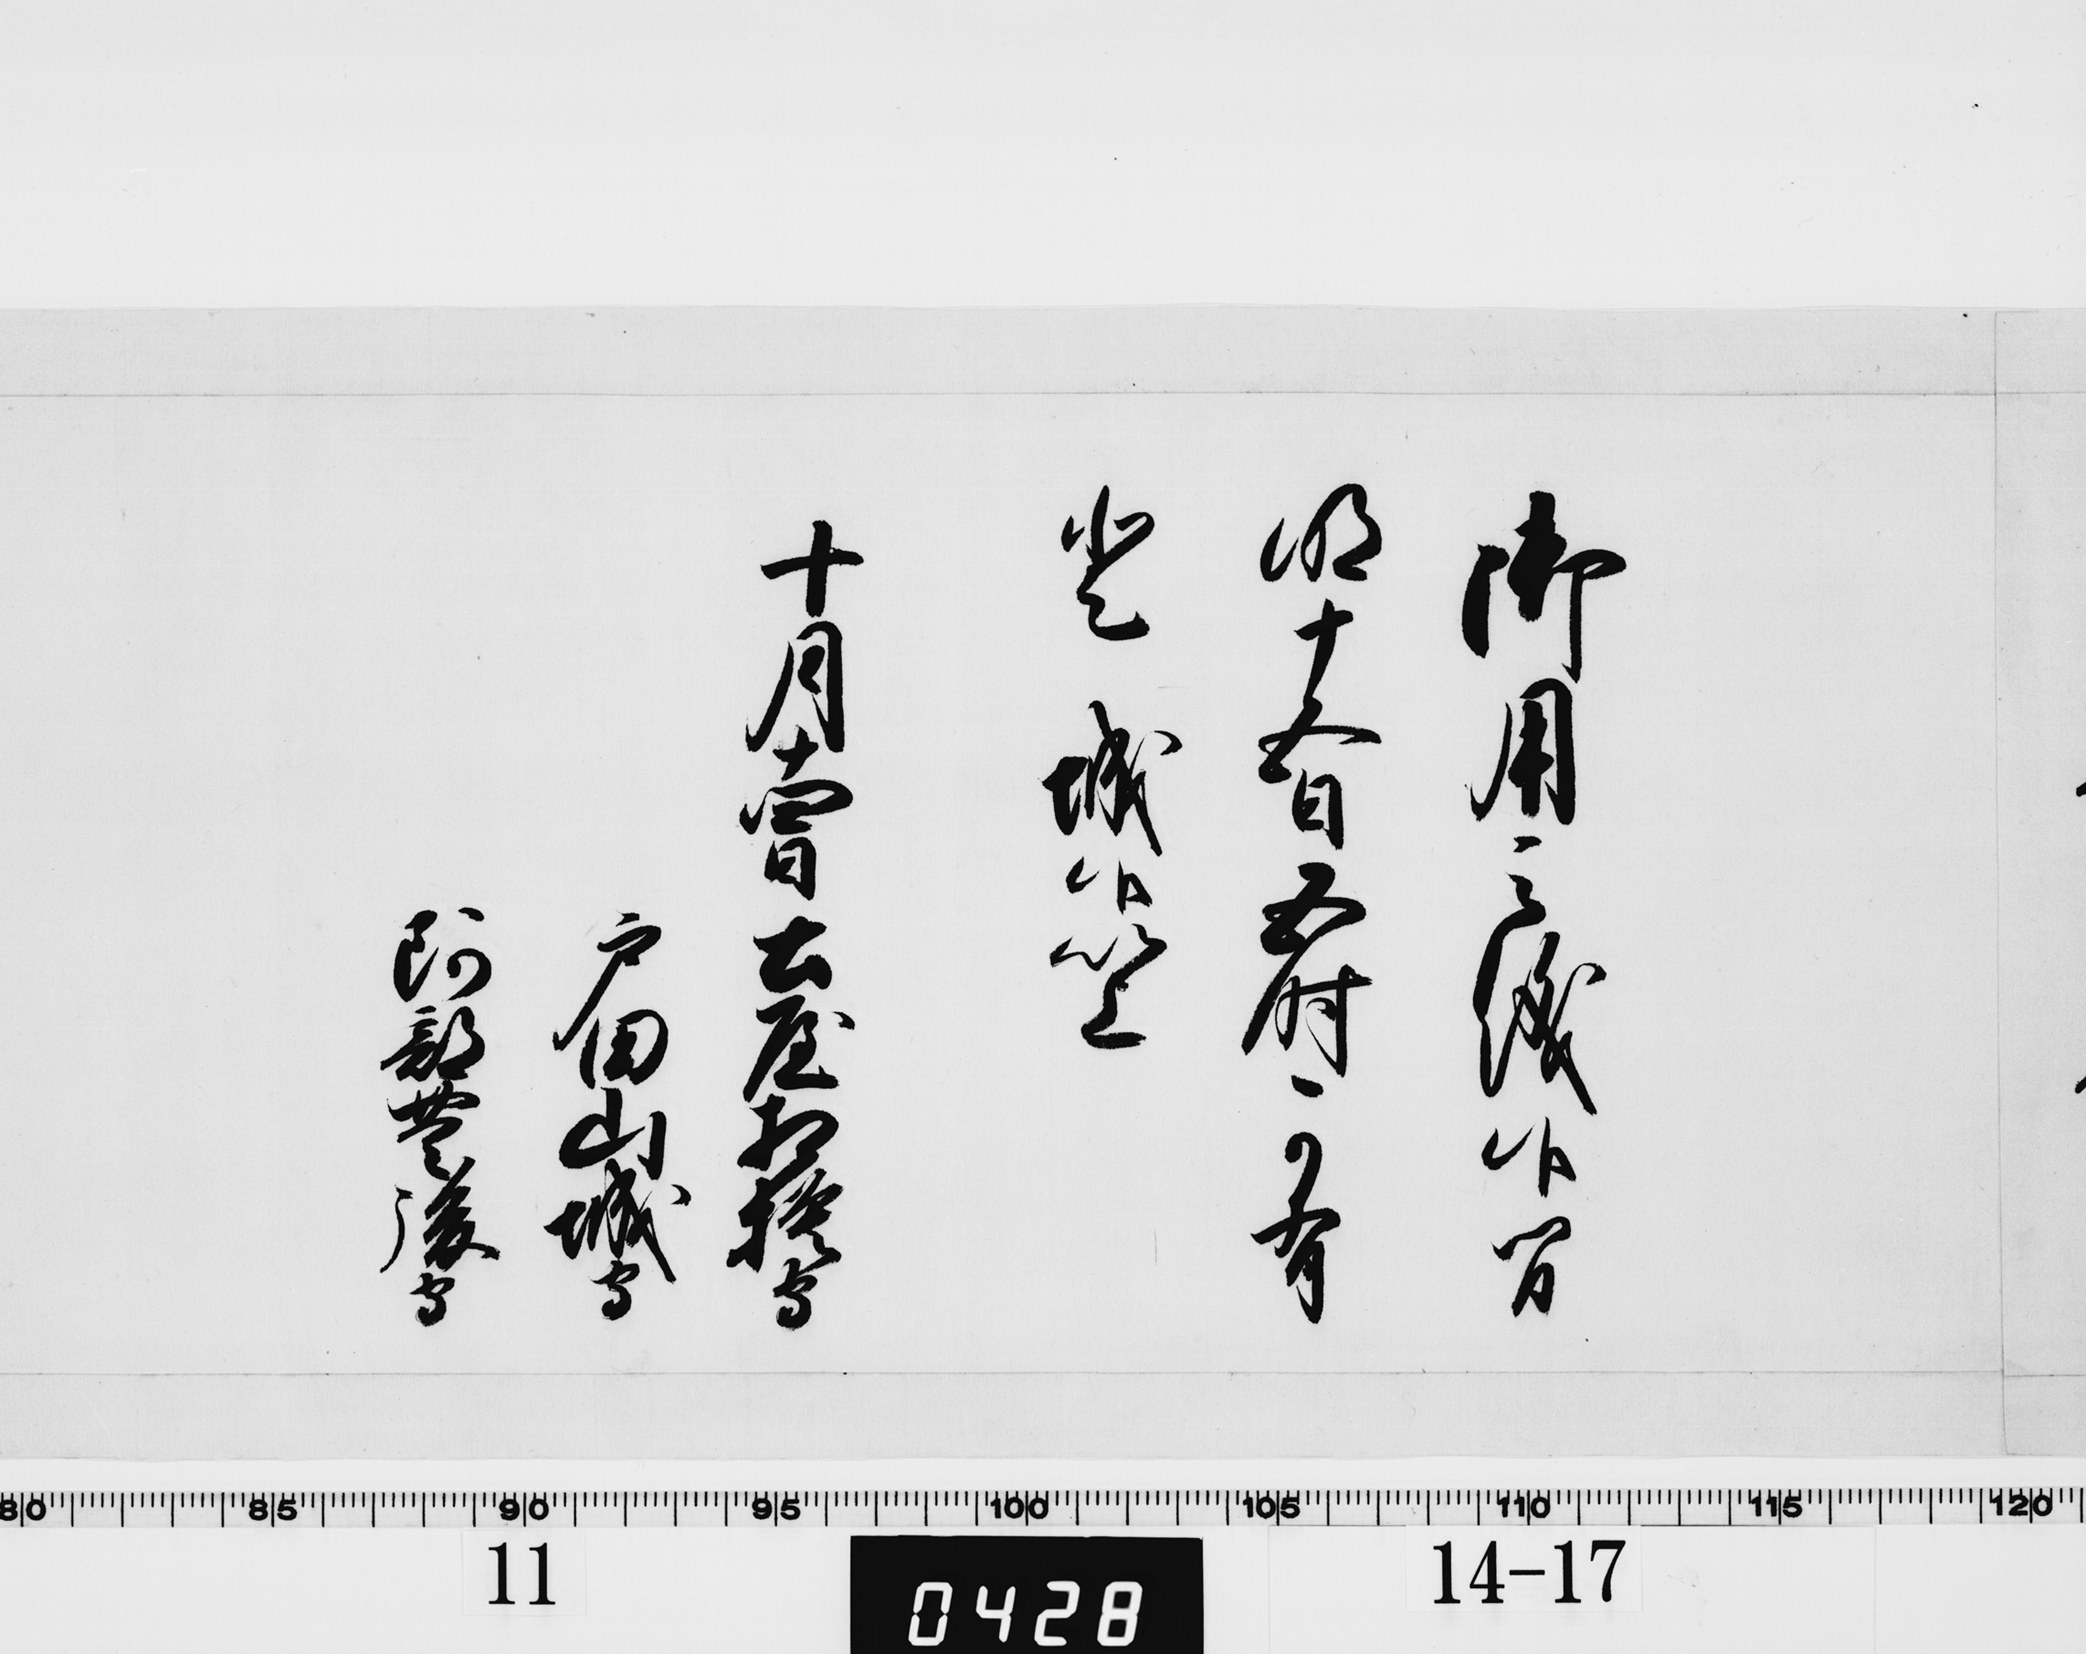 御用之儀候間
明十五日五時可有
登 城候以上
十月十四日 土屋相模守
戸田山城守
阿部豊後守
80 85 90 95 100 105 110 115 120
11
0428
14-17